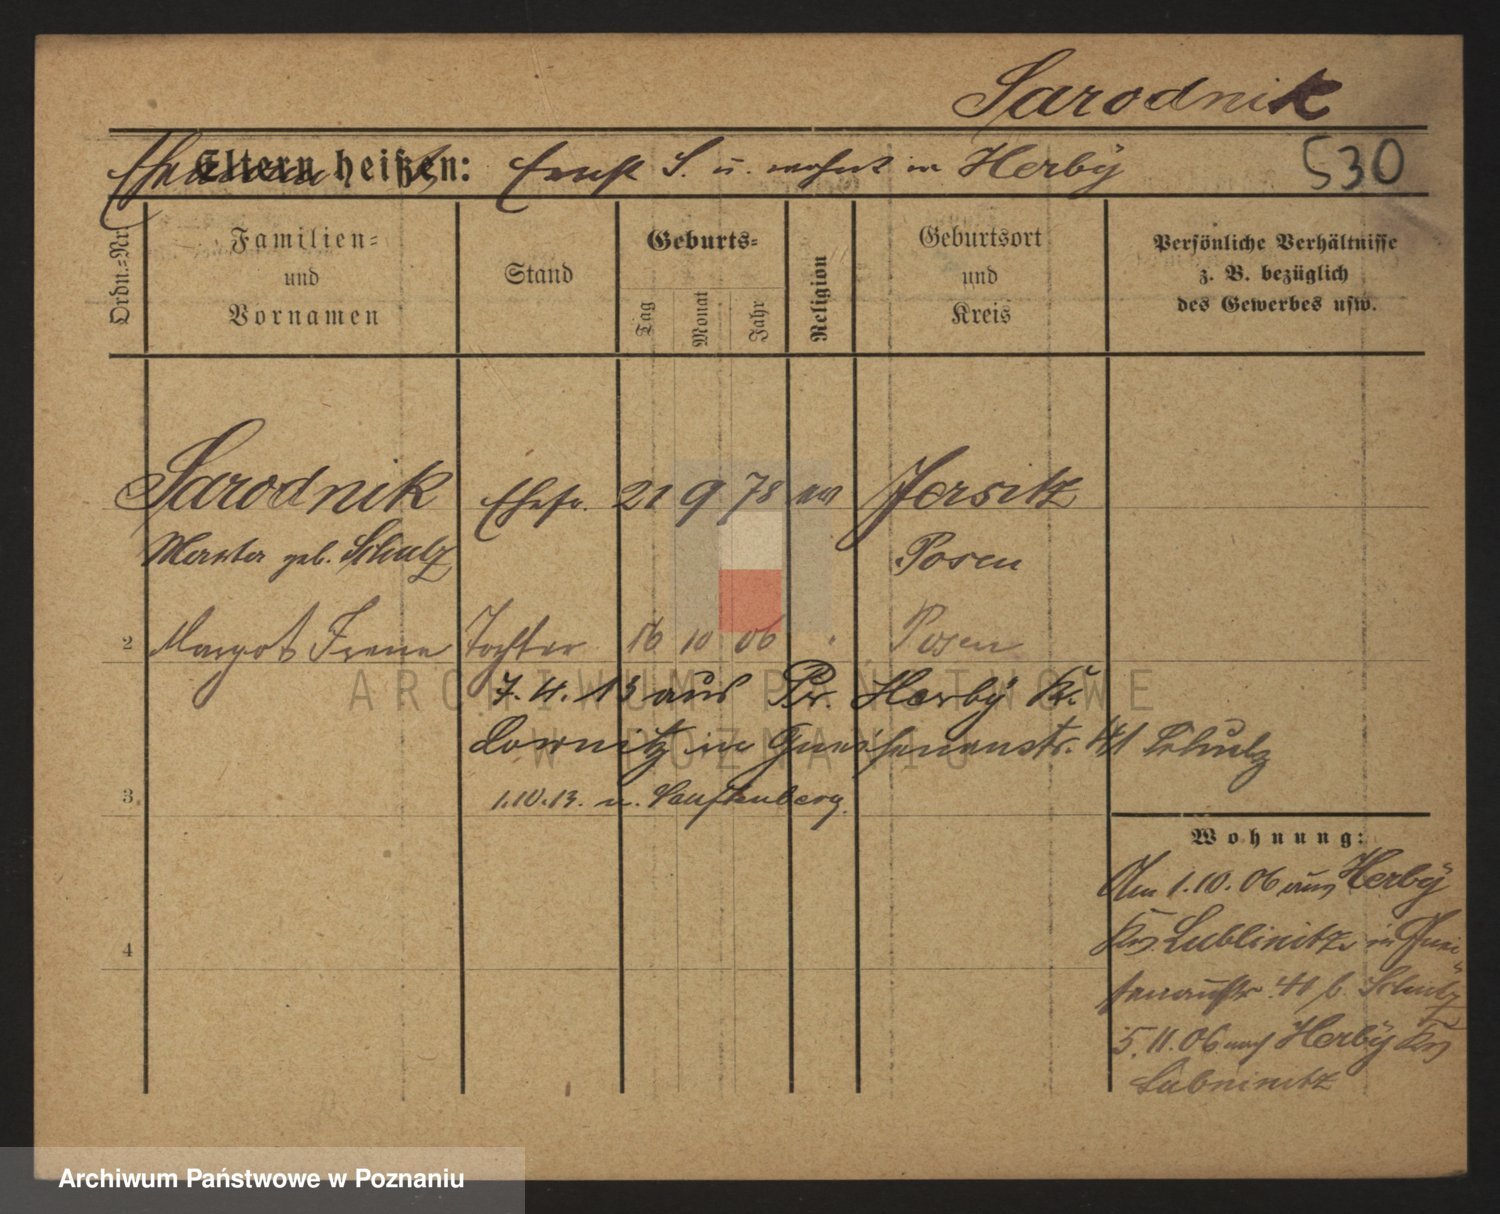 Sarodnik
Eltern heißen: Ernst S. u. wohnt in Herby 530
Ordn.-Nr.
Familien-
und
Vornamen
Stand
Geburts-
Tag
Monat
Jahr
Religion
Geburtsort
und
Kreis
Persönliche Verhältnisse
z. B. bezüglich
des Gewerbes usw.
Sarodnik Ehefr. 21 9 78 ev Jersitz
geb. Schulz Posen
2 Margot Irene Tochter 16 10 06 " Posen
7. 4. 13 aus Pr. Herby Kr.
in Gneisenaustr. 41 Schulz
3 1.10.13. n.
Wohnung:
Am 1.10.06 aus Herby
Krs. Lublinitz in Gnei-
4
senaustr. 41 b. Schulz
5.11.06 nach Herby Krs
Lubninitz
ARCHIWUM PAŃSTWOWE
W POZNANIU
Archiwum Państwowe w Poznaniu